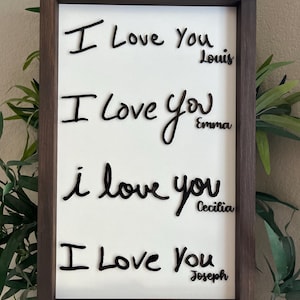 I Love You
Louis
I Love You
Emma
i love you
Cecilia
I Love You
Joseph